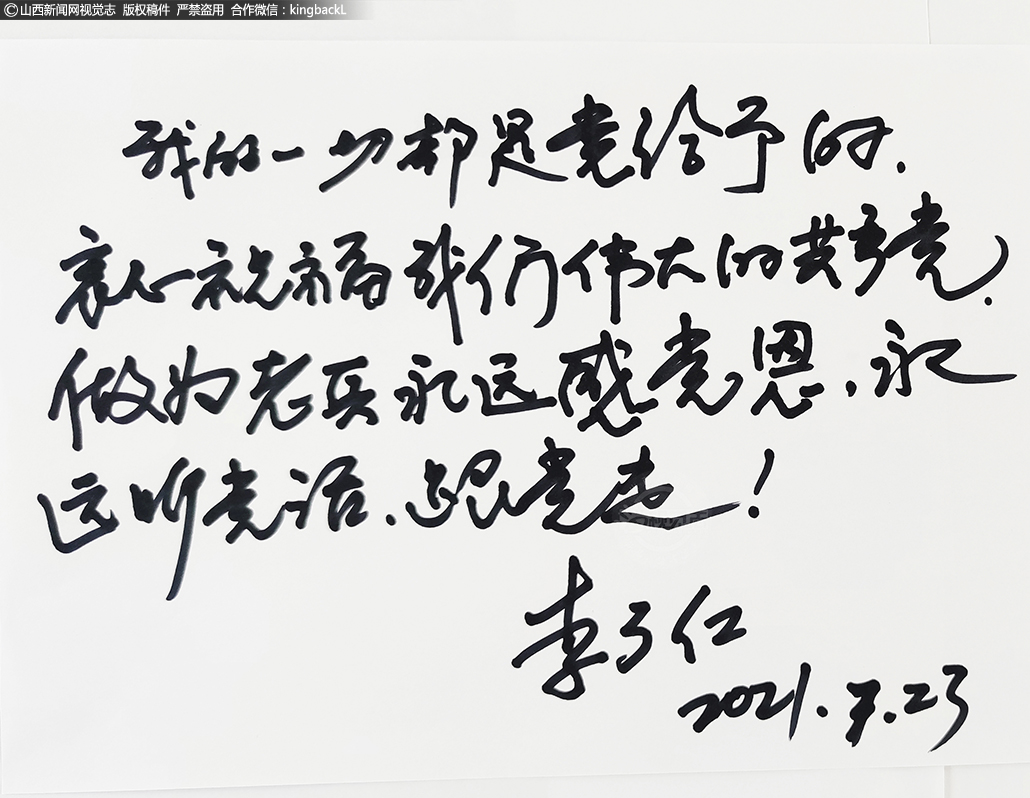 ©山西新闻网视觉志 版权稿件 严禁盗用 合作微信：kingbackL
我的一切都是党给予的.
衷心祝福我们伟大的共产党.
做为老兵永远感党恩,永
远听党话.跟党走!
李了仁
2021.7.23